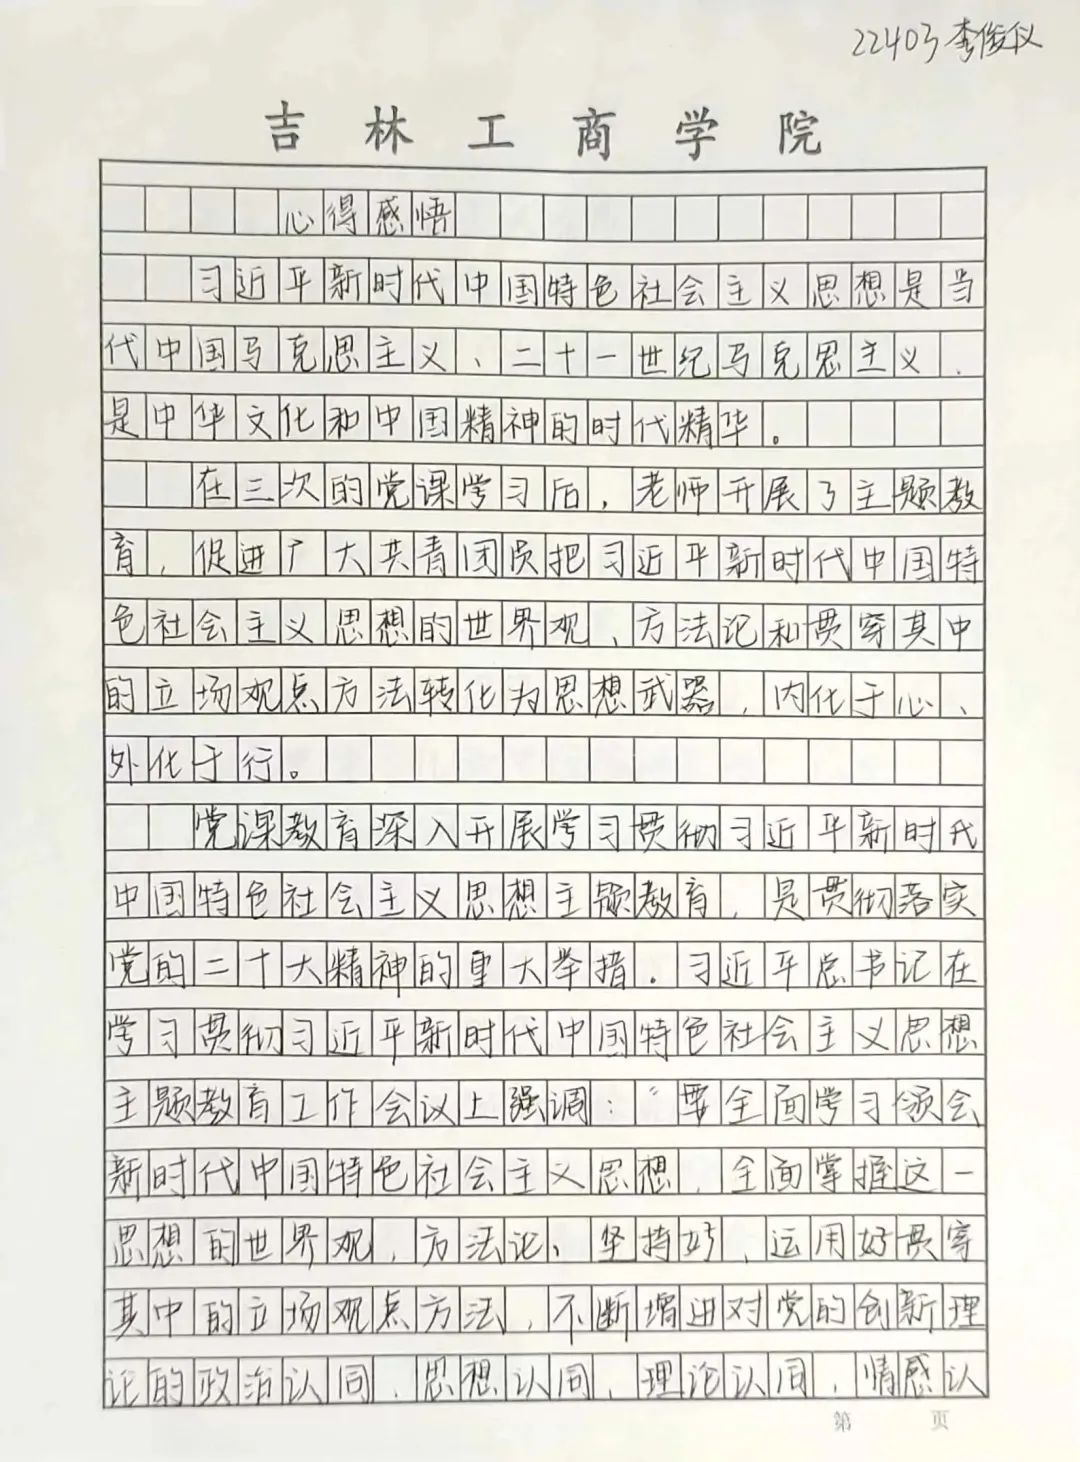 22403李俊仪
吉林工商学院
心得感悟
习近平新时代中国特色社会主义思想是当
代中国马克思主义、二十一世纪马克思主义、
是中华文化和中国精神的时代精华。
在三次的党课学习后，老师开展了主题教
育，促进广大共青团员把习近平新时代中国特
色社会主义思想的世界观、方法论和贯穿其中
的立场观点方法转化为思想武器，内化于心、
外化于行。
党课教育深入开展学习贯彻习近平新时代
中国特色社会主义思想主题教育，是贯彻落实
党的二十大精神的重大举措。习近平总书记在
学习贯彻习近平新时代中国特色社会主义思想
主题教育工作会议上强调：“要全面学习领会
新时代中国特色社会主义思想，全面掌握这一
思想的世界观、方法论，坚持好、运用好贯穿
其中的立场观点方法，不断增进对党的创新理
论的政治认同、思想认同、理论认同、情感认
第 页